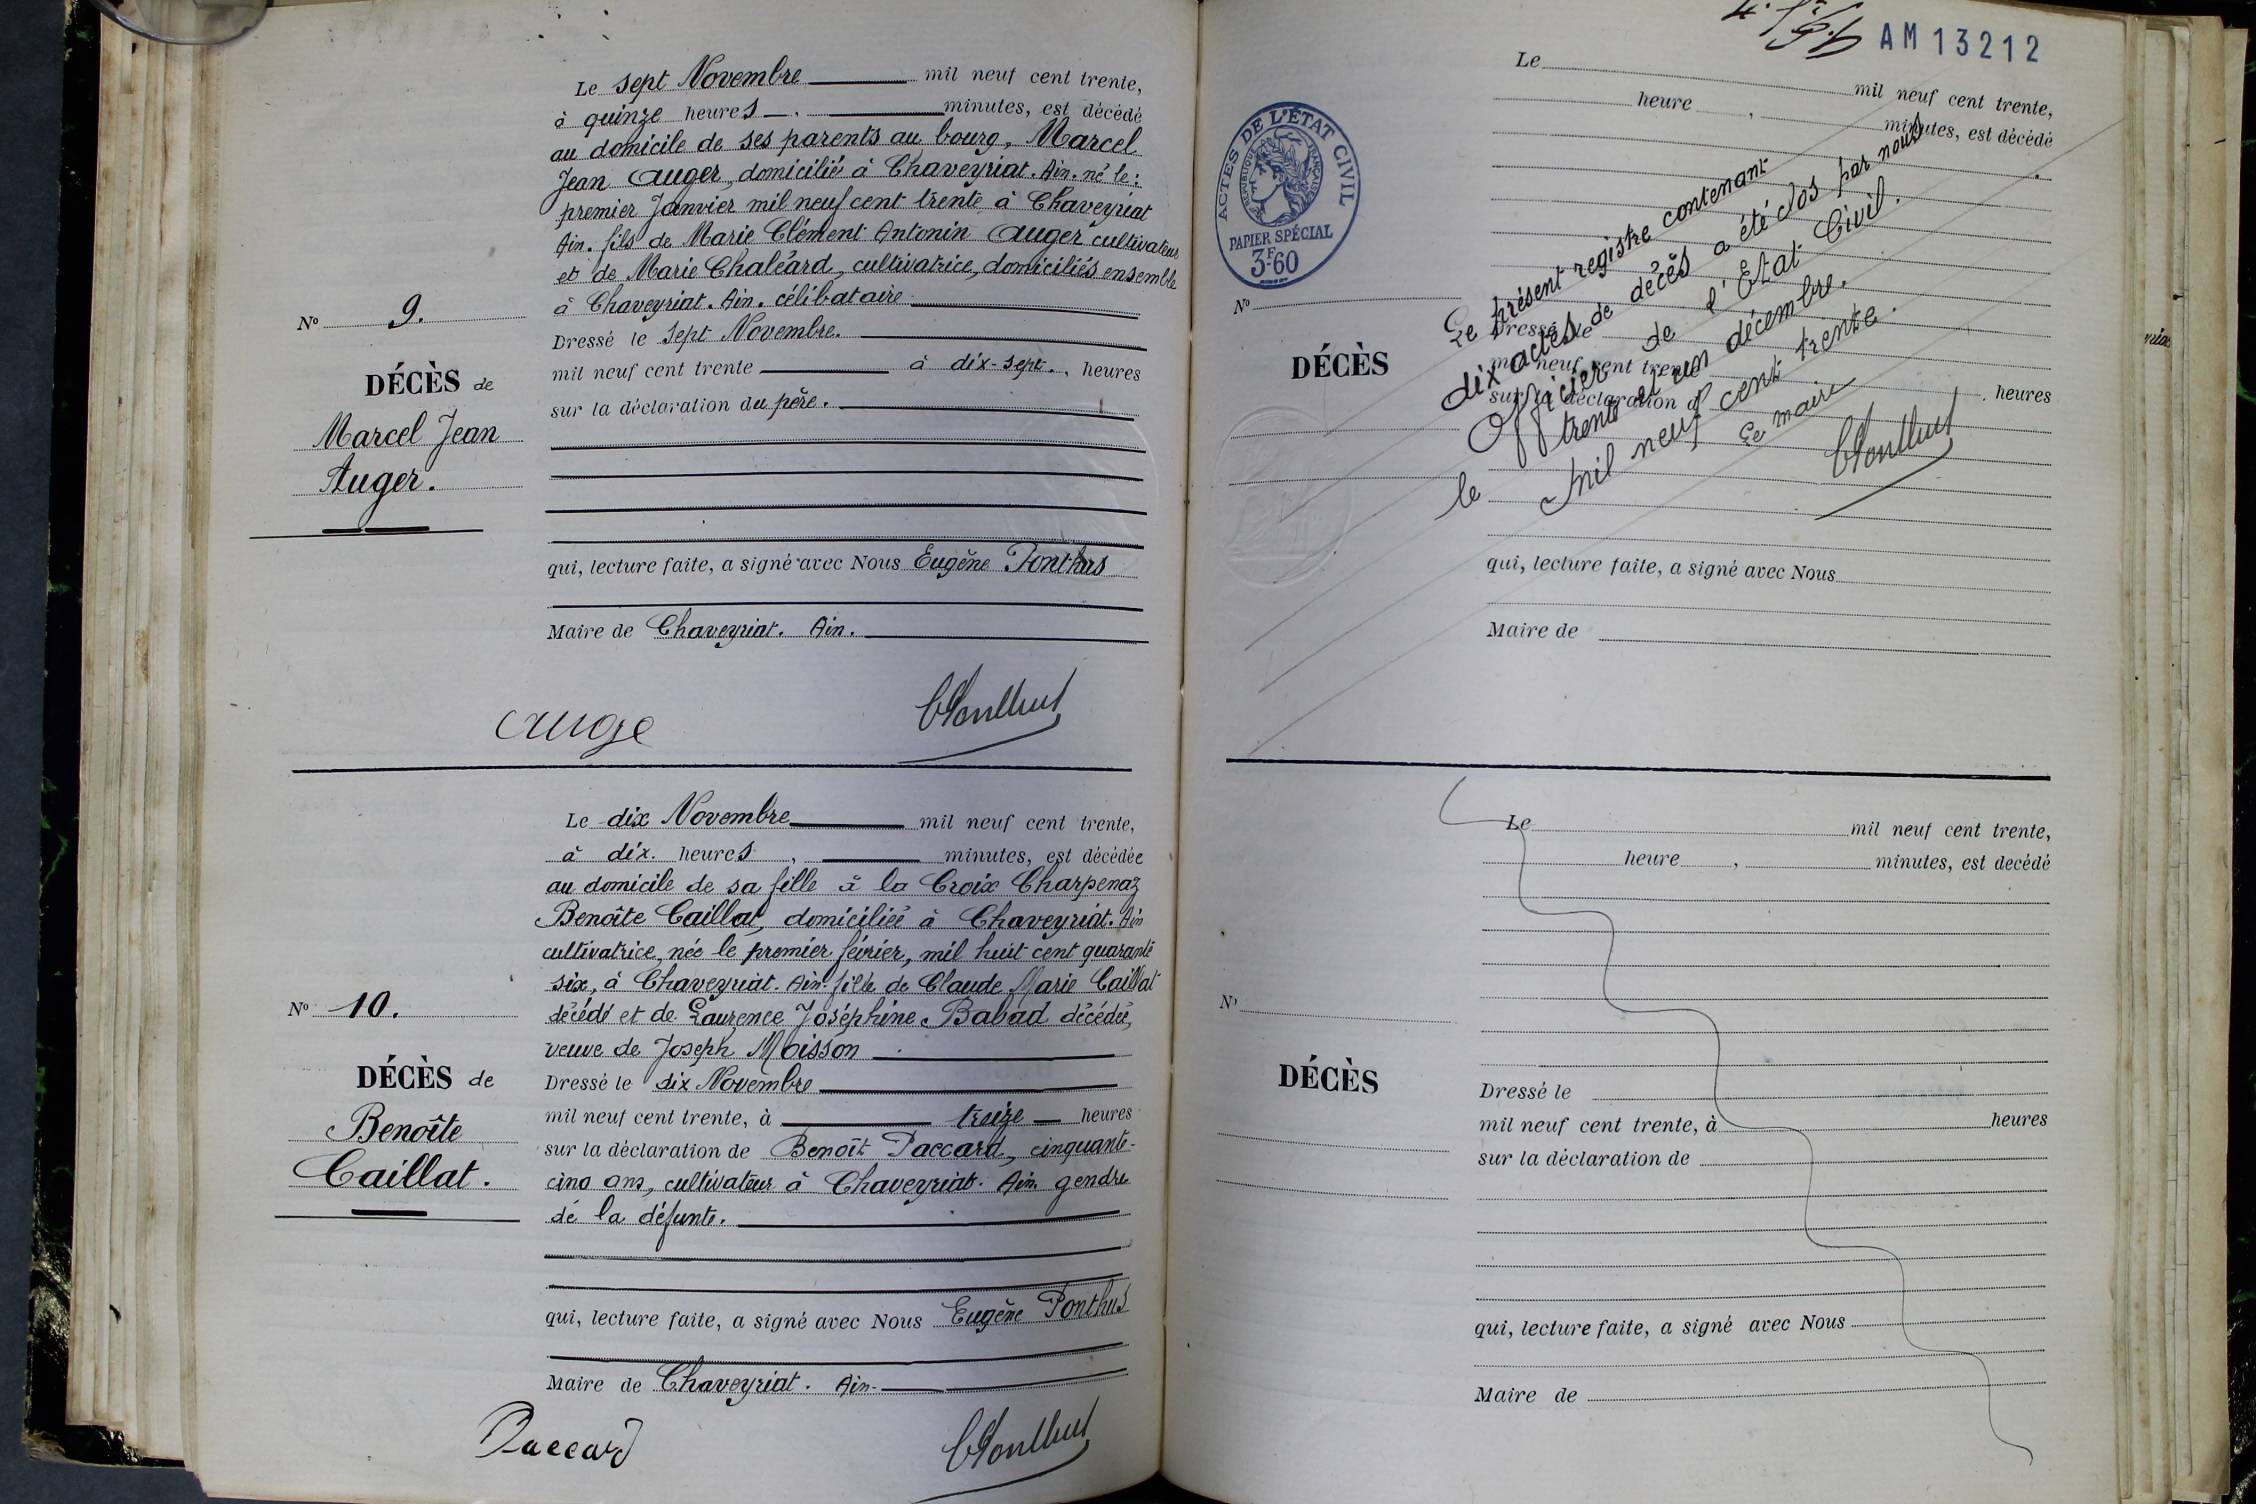 Le sept Novembre mil neuf cent trente,
à quinze heures minutes, est décédé
au domicile de ses parents au bourg, Marcel
Jean Auger, domicilié à Chaveyriat. Ain. né le :
premier Janvier mil neuf cent trente à Chaveyriat
Ain. fils de Marie Clément Antonin Auger cultivateur
et de Marie Chaléard, cultivatrice, domiciliés ensemble
à Chaveyriat. Ain. célibataire
Nº 9.
Dressé le sept Novembre.
mil neuf cent trente à dix-sept., heures
DÉCÈS de
sur la déclaration du père.
Marcel Jean
Auger.
qui, lecture faite, a signé avec Nous Eugène Ponthus
Maire de Chaveyriat. Ain.
Auge
Le dix Novembre mil neuf cent trente,
à dix. heures, minutes, est décédée
au domicile de sa fille à la Croix Charpenaz
Benoîte Caillat, domiciliée à Chaveyriat. Ain
cultivatrice, née le premier février, mil huit cent quarante
six, à Chaveyriat. Ain. fille de Claude Marie Caillat
Nº 10.
décédé et de Laurence Joséphine Baband décédée,
veuve de Joseph Moisson
DÉCÈS de
Dressé le dix Novembre
mil neuf cent trente, à treize heures
Benoîte
sur la déclaration de Benoît Paccard, cinquante-
Caillat.
cinq ans, cultivateur à Chaveyriat. Ain. gendre
de la défunte.
qui, lecture faite, a signé avec Nous Eugène Ponthus
Maire de Chaveyriat. Ain-
Paccard
AM 13212
Le mil neuf cent trente,
heure , minutes, est décédé
ACTES DE L'ÉTAT CIVIL
RÉPUBLIQUE FRANÇAISE
PAPIER SPÉCIAL
3F-60
Le présent registre contenant
dix actes de décès a été clos par nous
Officier de l'Etat Civil.
le trente et un décembre.
mil neuf cent trente.
Le maire
Nº
DÉCÈS
Dressé le
mil neuf cent trente
heures
sur la déclaration d
qui, lecture faite, a signé avec Nous
Maire de
Le mil neuf cent trente,
heure , minutes, est decédé
Nº
DÉCÈS
Dressé le
mil neuf cent trente, à heures
sur la déclaration de
qui, lecture faite, a signé avec Nous
Maire de